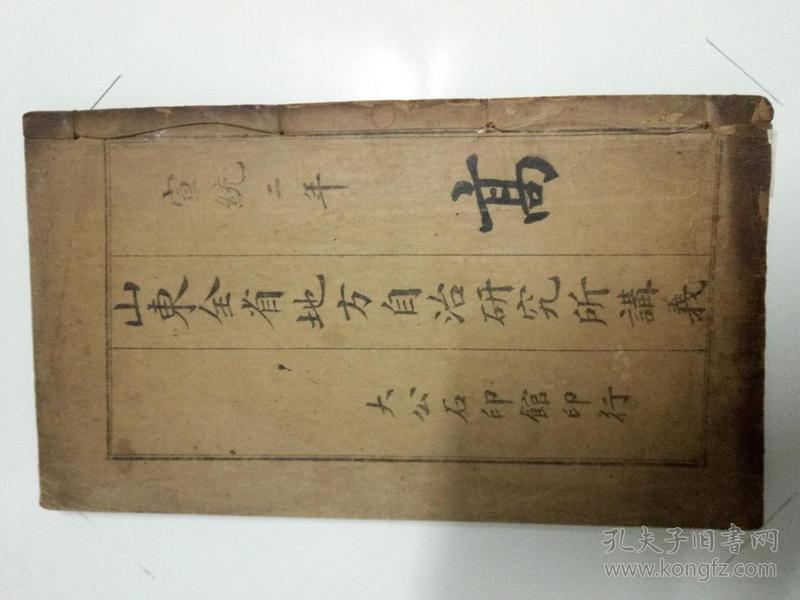 宣統二年
高
山東全省地方自治研究所講義
大公石印館印行
孔夫子旧书网
www.kongfz.com